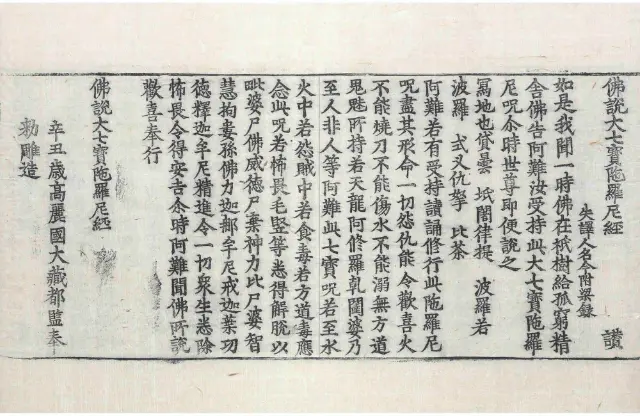 佛說大七寶陁羅尼經 讃
失譯人名今附梁錄
如是我聞一時佛在祇樹給孤窮精
舍佛告阿難汝受持此大七寶陁羅
尼呪尒時世尊卽便說之
冩地也貸曇 坻闍律提 波羅若
波羅 式叉仇挐 比茶
阿難若有受持讀誦修行此陁羅尼
呪盡其形命一切怨仇能令歡喜火
不能燒刀不能傷水不能溺無方道
鬼魅所持若天龍阿修羅乹闥婆乃
至人非人等阿難此七寶呪若至水
火中若怨賊中若食毒若方道毒應
念此呪若怖畏毛竪等悉得解脫以
毗婆尸佛威德尸棄神力比尸婆智
慧拘婁孫佛力迦郍牟尼戒迦葉功
德釋迦牟尼精進令一切衆生悉除
怖畏令得安吉尒時阿難聞佛所說
歡喜奉行
佛說大七寶陁羅尼經
辛丑歲高麗國大藏都監奉
勑雕造